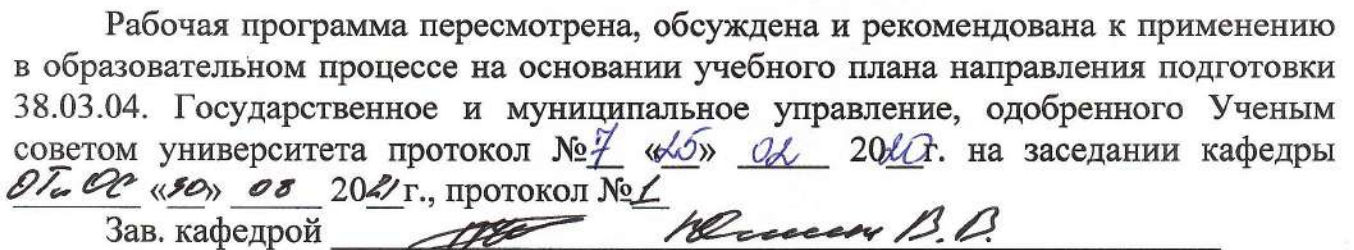 Рабочая программа пересмотрена, обсуждена и рекомендована к применению
в образовательном процессе на основании учебного плана направления подготовки
38.03.04. Государственное и муниципальное управление, одобренного Ученым
советом университета протокол №7 «25» 02 2020г. на заседании кафедры
ОТиОС «30» 08 2021г., протокол №1
Зав. кафедрой В.В.